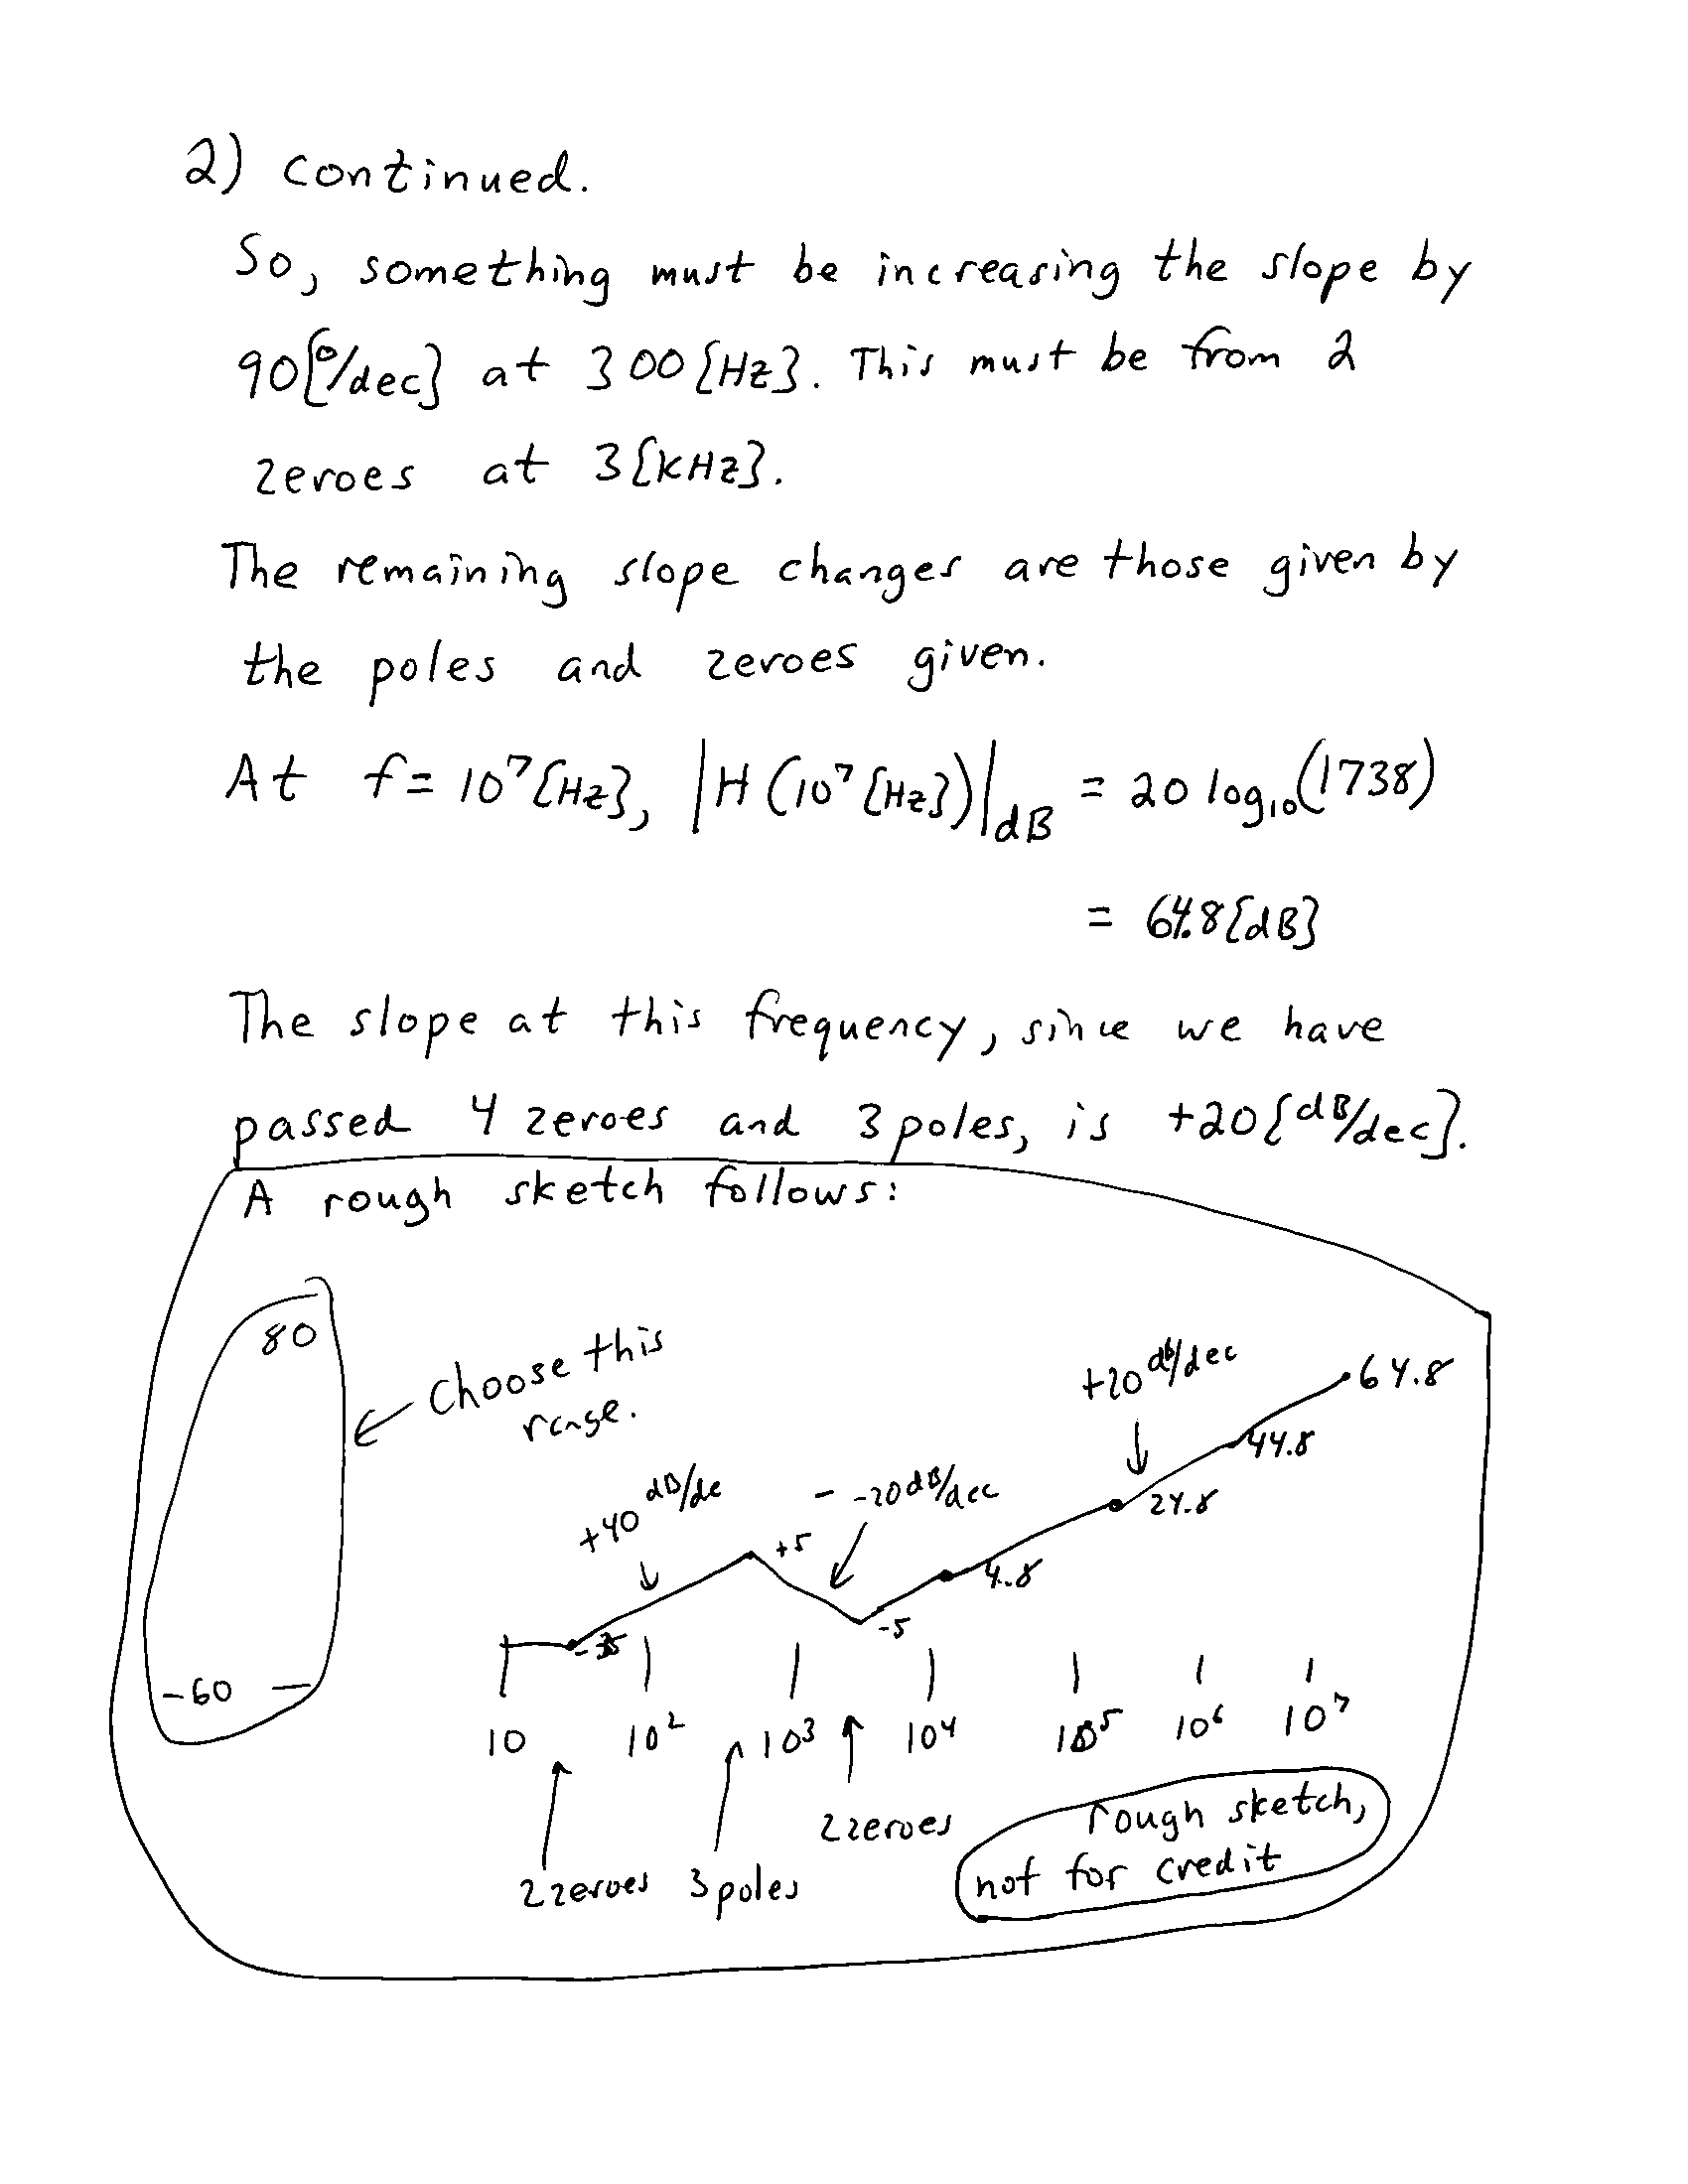 2) Continued.
So, something must be increasing the slope by
90[°/dec] at 300[Hz]. This must be from 2
zeroes at 3[kHz].
The remaining slope changes are those given by
the poles and zeroes given.
At f = 10⁷[Hz], |H(10⁷[Hz])|dB = 20 log₁₀(1738)
= 64.8[dB]
The slope at this frequency, since we have
passed 4 zeroes and 3 poles, is +20[dB/dec].
A rough sketch follows:
80
Choose this
range.
+20 dB/dec
64.8
44.8
+40 dB/de
- -20 dB/dec
24.8
+5
4.8
-5
-35
-60
10 10² 10³ 10⁴ 10⁵ 10⁶ 10⁷
2 zeroes 3 poles 2 zeroes
rough sketch,
not for credit